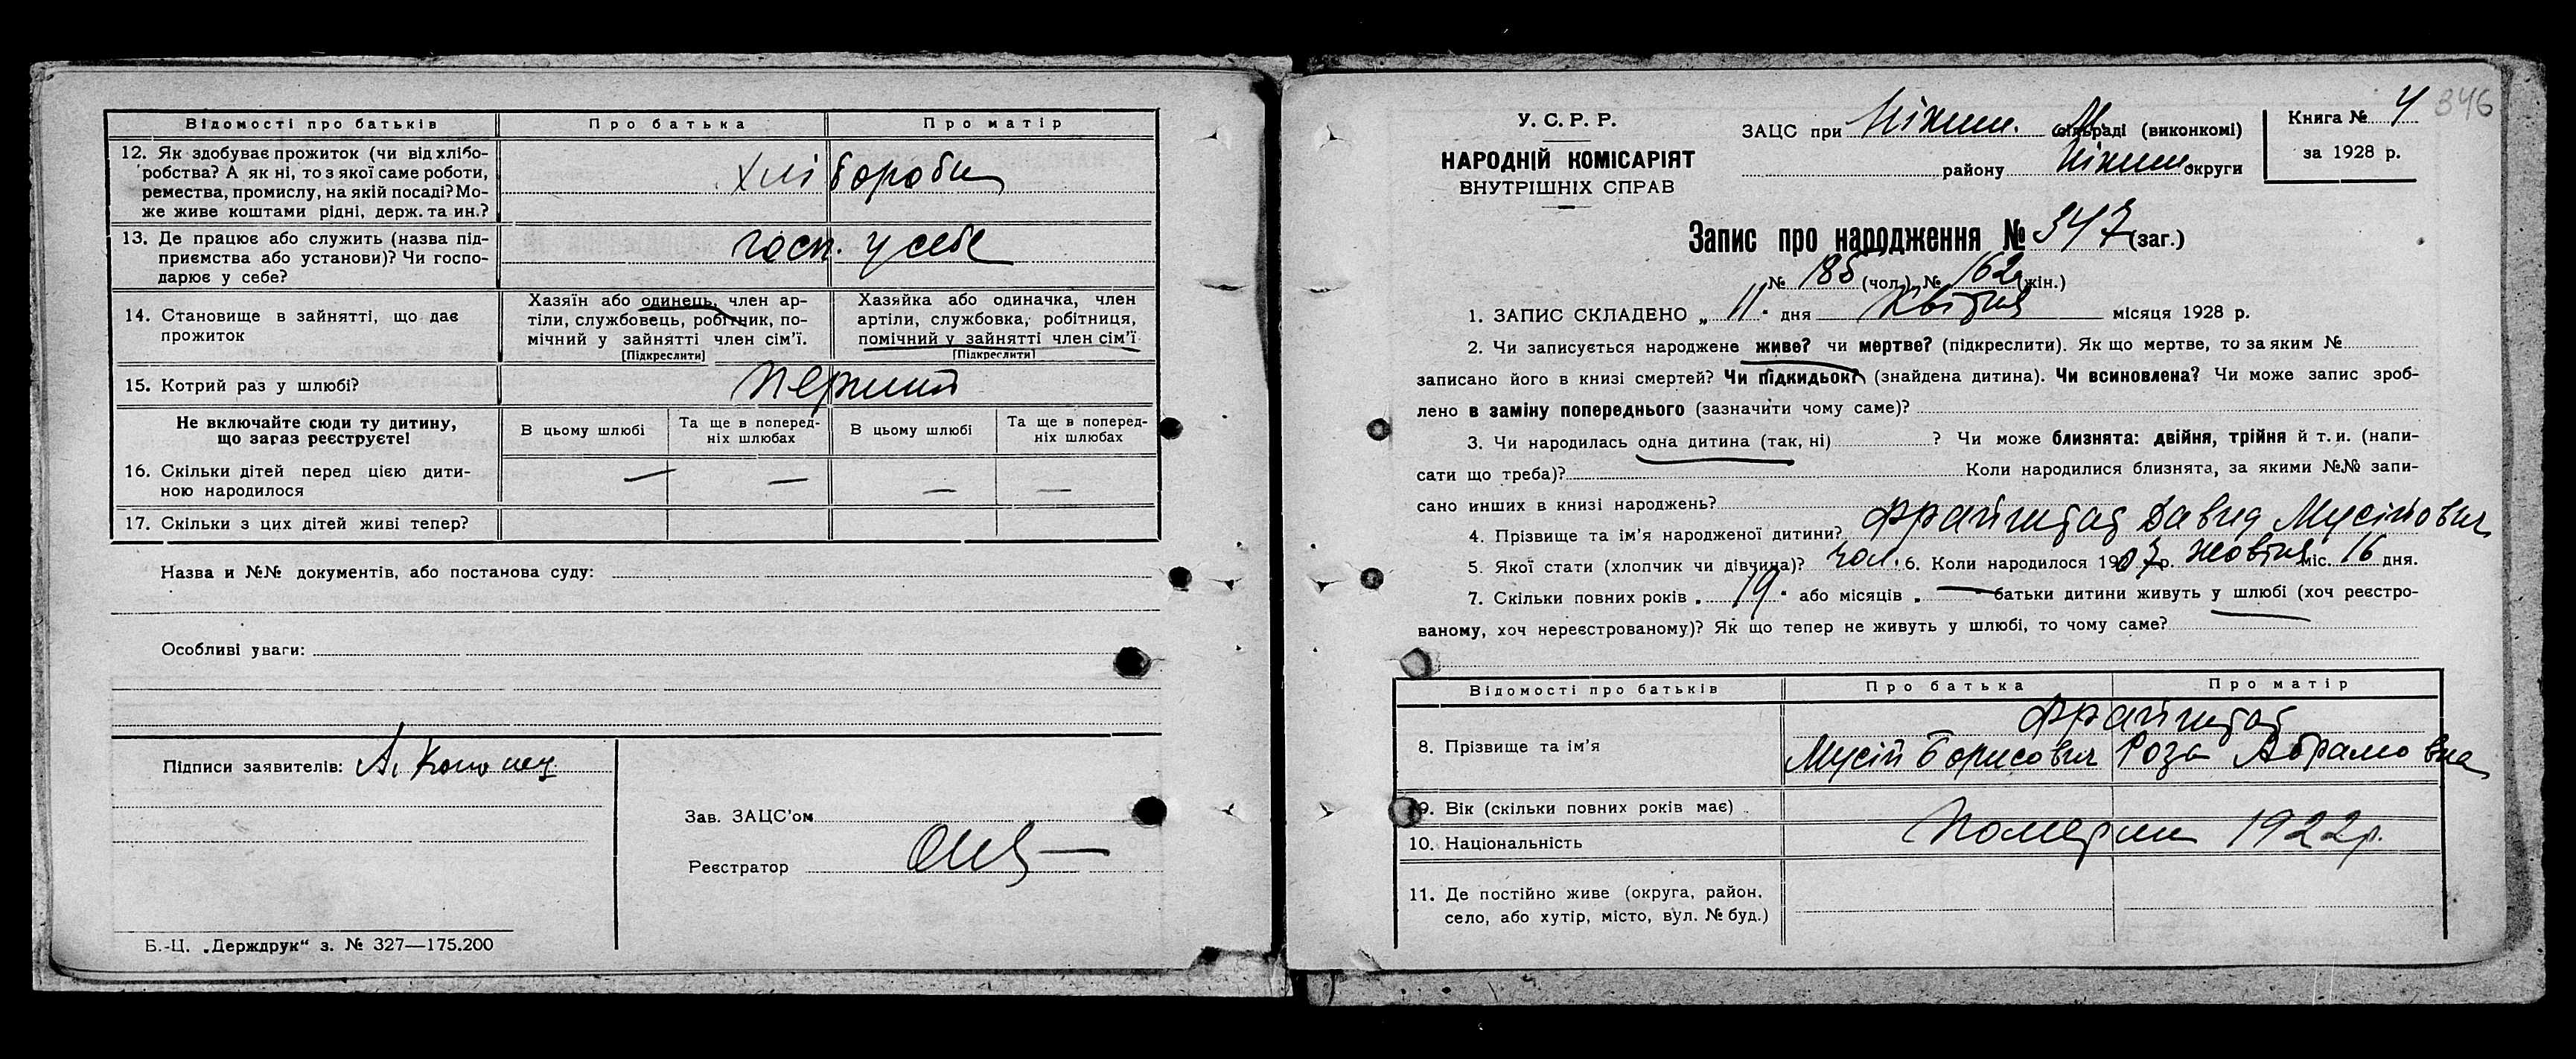 Відомості про батьків Про батька Про матір
12. Як здобуває прожиток (чи від хлібо-
робства? А як ні, то з якої саме роботи,
ремества, промислу, на якій посаді? Мо-
же живе коштами рідні, держ. та ин.?
хлібороби
13. Де працює або служить (назва під-
приємства або установи)? Чи госпо-
дарює у себе?
госп. у себе
14. Становище в зайнятті, що дає
прожиток
Хазяїн або одинець, член ар-
тіли, службовець, робітник, по-
мічний у зайнятті член сім'ї.
[Підкреслити]
Хазяйка або одиначка, член
артіли, службовка, робітниця,
помічний у зайнятті член сім'ї
[Підкреслити]
15. Котрий раз у шлюбі?
Перший
Не включайте сюди ту дитину,
що зараз реєструєте!
В цьому шлюбі
Та ще в поперед-
ніх шлюбах
В цьому шлюбі
Та ще в поперед-
ніх шлюбах
16. Скільки дітей перед цією дити-
ною народилося
— — — —
17. Скільки з цих дітей живі тепер?
Назва и №№ документів, або постанова суду:
Особливі уваги:
Підписи заявителів:
Зав. ЗАЦС'ом
Реєстратор
Б.-Ц. „Держдрук“ з. № 327—175.200
У. С. Р. Р.
НАРОДНІЙ КОМІСАРІЯТ
ВНУТРІШНІХ СПРАВ
ЗАЦС при Ніжин. М. сільраді (виконкомі)
району Ніжин округи
Книга № 4
за 1928 р.
346
Запис про народження № 347 (заг.)
№ 185 (чол.) № 162 (жін.)
1. ЗАПИС СКЛАДЕНО „ 11 " дня Квітня місяця 1928 р.
2. Чи записується народжене живе? чи мертве? (підкреслити). Як що мертве, то за яким №
записано його в книзі смертей? Чи підкидьок? (знайдена дитина). Чи всиновлена? Чи може запис зроб-
лено в заміну попереднього (зазначити чому саме)?
3. Чи народилась одна дитина (так, ні) ? Чи може близнята: двійня, трійня й т. и. (напи-
сати що треба)? Коли народилися близнята, за якими №№ запи-
сано инших в книзі народжень?
4. Прізвище та ім'я народженої дитини? Фрайштат Давид Мусійович
5. Якої стати (хлопчик чи дівчина)? чол. 6. Коли народилося 1907 р. жовтня міс. 16 дня.
7. Скільки повних років „ 19 " або місяців „ — " батьки дитини живуть у шлюбі (хоч реєстро-
ваному, хоч нереєстрованому)? Як що тепер не живуть у шлюбі, то чому саме?
Відомості про батьків Про батька Про матір
Фрайштат
8. Прізвище та ім'я Мусій Борисович Роза Абрамовна
9. Вік (скільки повних років має)
Померли 1922 р.
10. Національність
11. Де постійно живе (округа, район,
село, або хутір, місто, вул. № буд.)